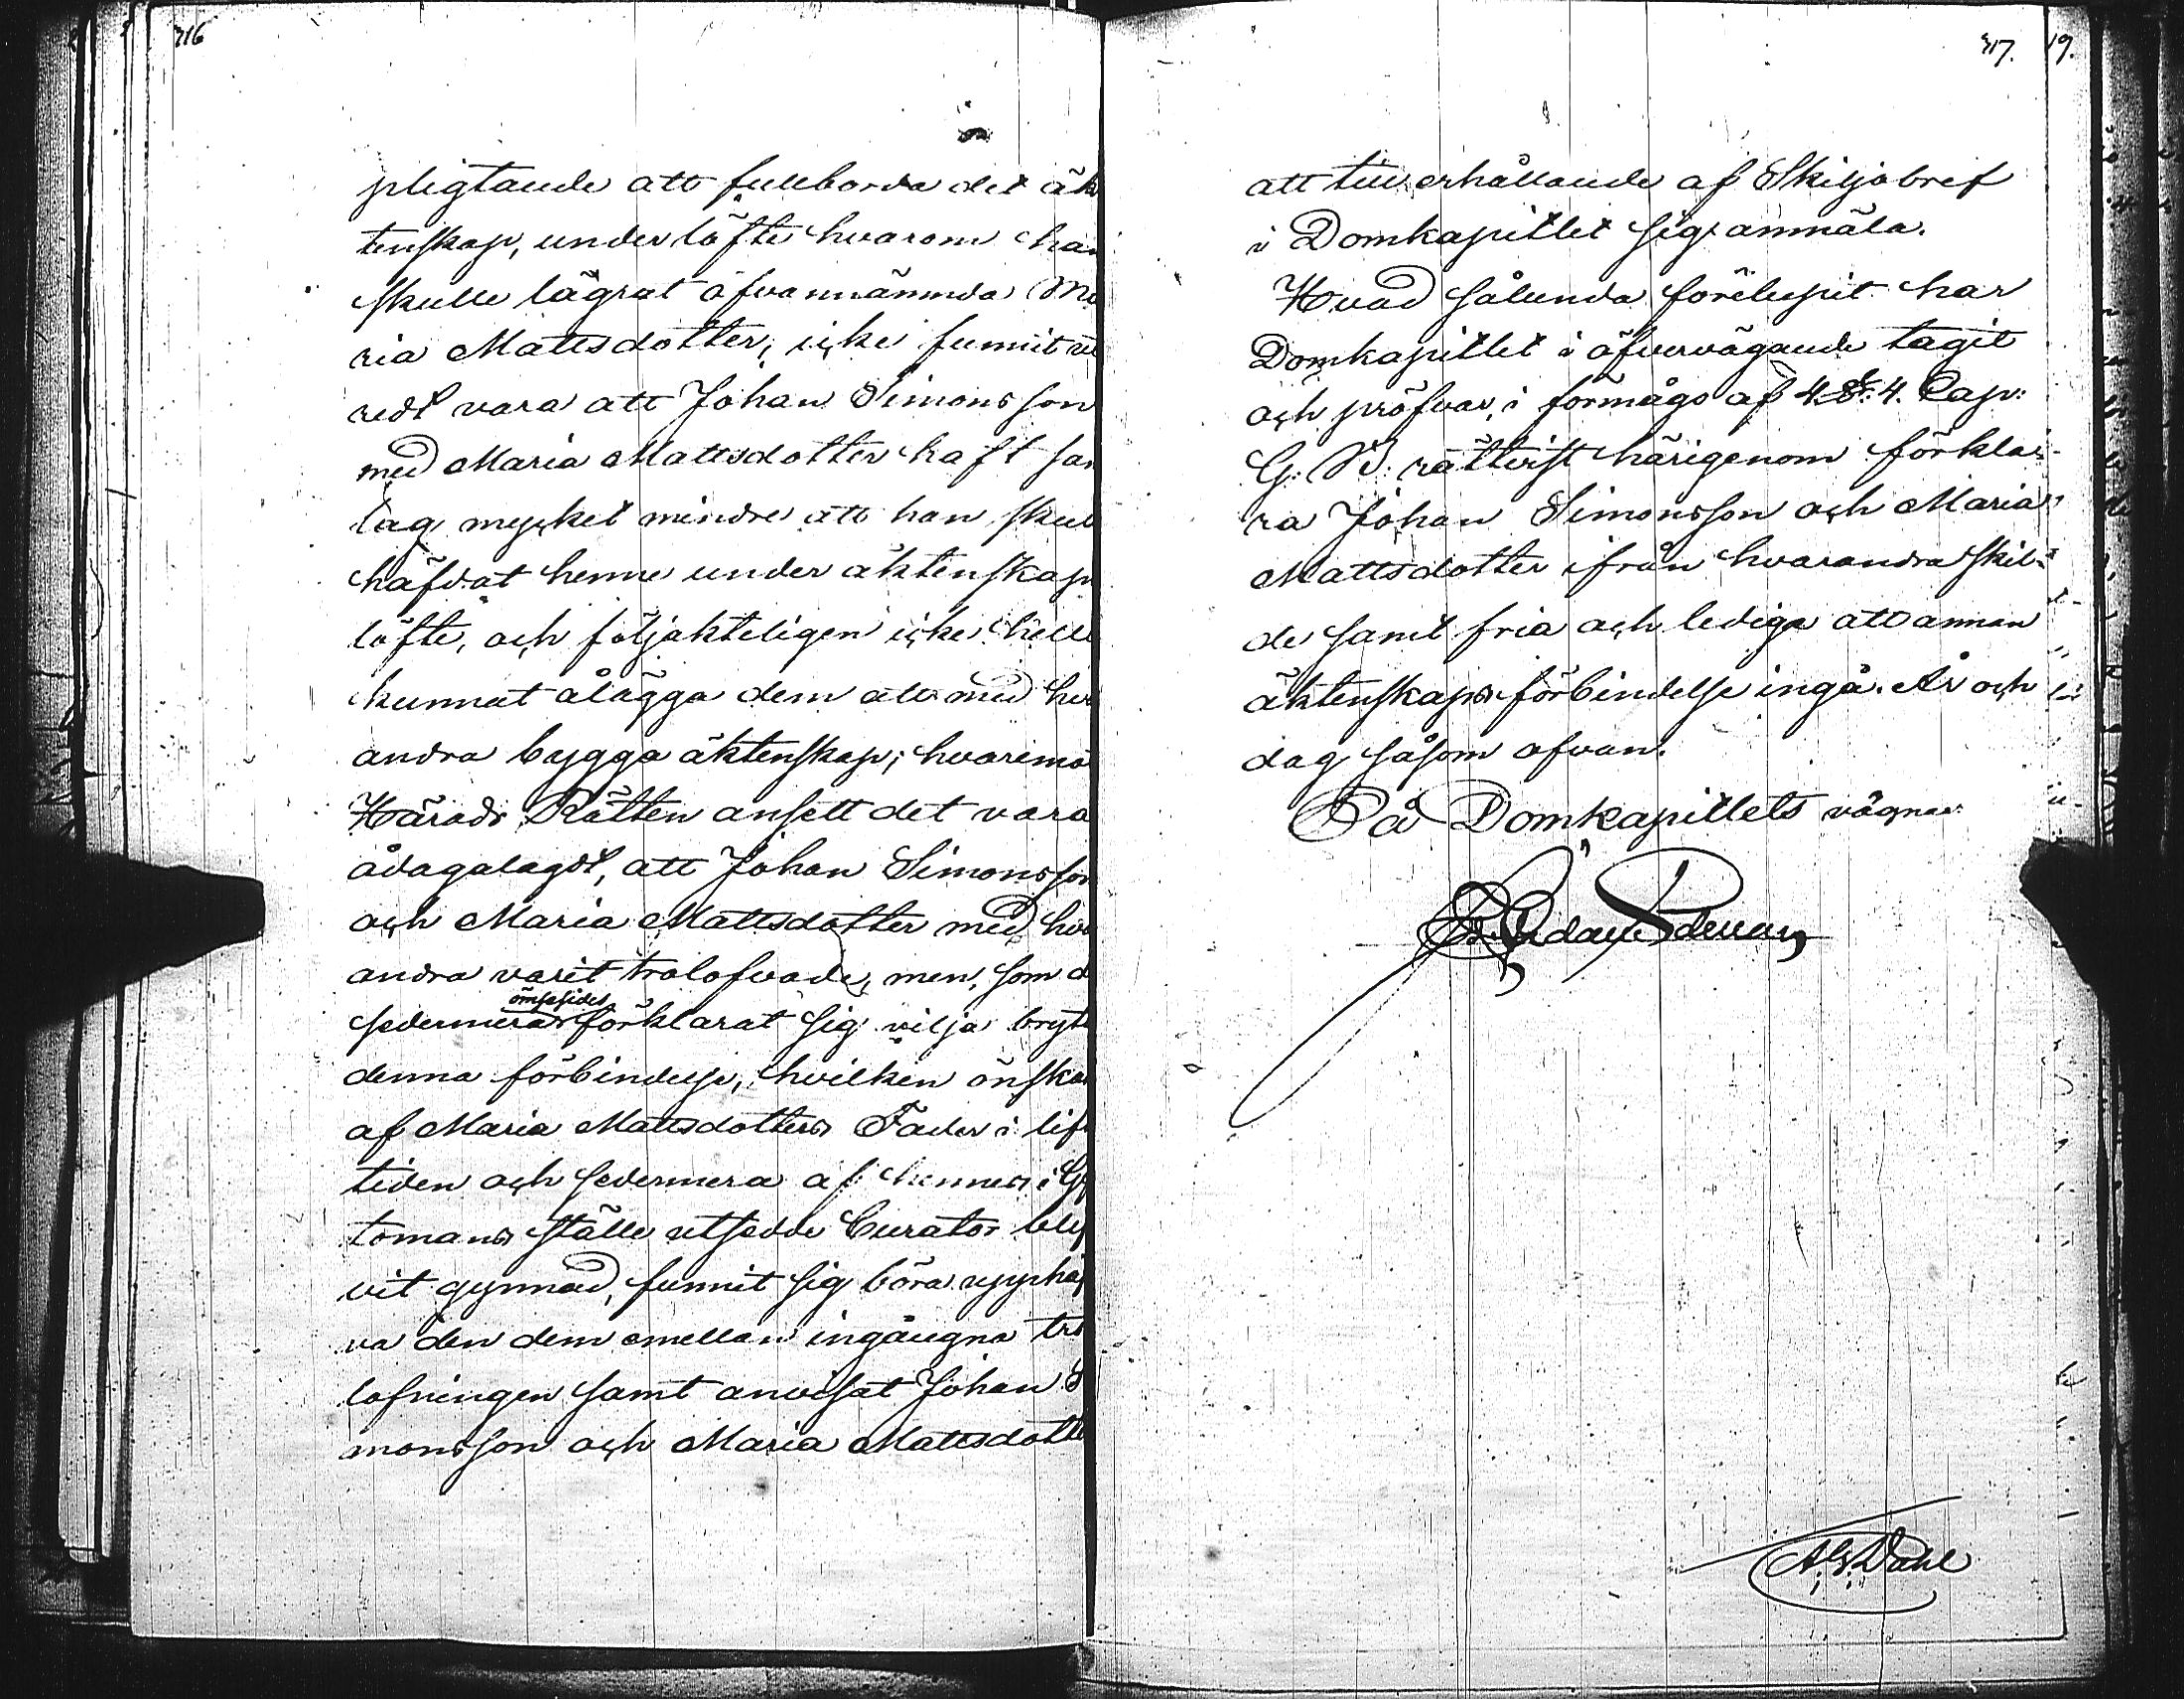 316
pligtande att fullborda det äk
tenskap, under löfte hvarom han
skulle lägrat ofvannämnda Ma
ria Mattsdotter, icke funnit ut
redt vara att Johan Simonsson
med Maria Mattsdotter haft sam
lag mycket mindre att han skul
häfdat henne under äktenskaps
löfte, och följakteligen icke hell
kunnat ålägga dem att med hva
andra bygga äktenskap; hvaremo
Härads Rätten ansett det vara
ådagalagdt, att Johan Simonsson
och Maria Mattsdotter med hva
andra varit trolofvade, men, som d
sedermera ömsesides förklarat sig vilja bryta
denna förbindelse, hvilken önskan
af Maria Mattsdotters Fader i lifs
tiden och sedermera af hennes i Gif
tomans ställe utsedde Curator blif
vit gynnad, funnit sig böra upphäf
va den dem emellan ingångna tro
lofningen samt anvisat Johan S
monsson och Maria Mattsdotte
317. 19.
att till erhållande af Skiljobref
i Domkapitlet sig anmäla.
Hvad sålunda förelupit har
Domkapitlet i öfvervägande tagit
och pröfvar, i förmågo af 4. §. 4. Cap:
G: B: rättvist härigenom förkla-
ra Johan Simonsson och Maria
Mattsdotter ifrån hvarandra skil-
de samt fria och lediga att annan
äktenskaps förbindelse ingå. År och
dag såsom ofvan.
På Domkapitlets vägnar
A. G. Dahl